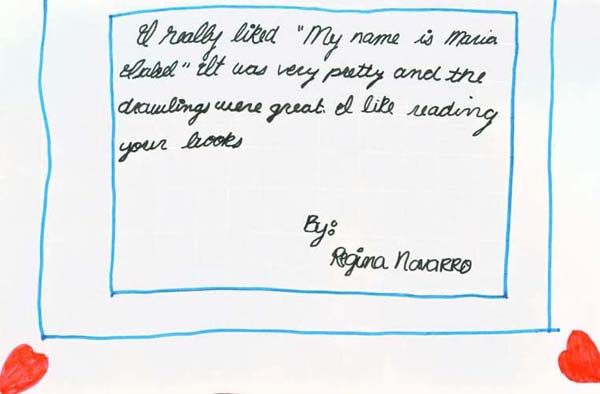 I really liked "My name is Maria
Isabel" It was very pretty and the
drawlings were great. I like reading
your books
By:
Regina Navarro